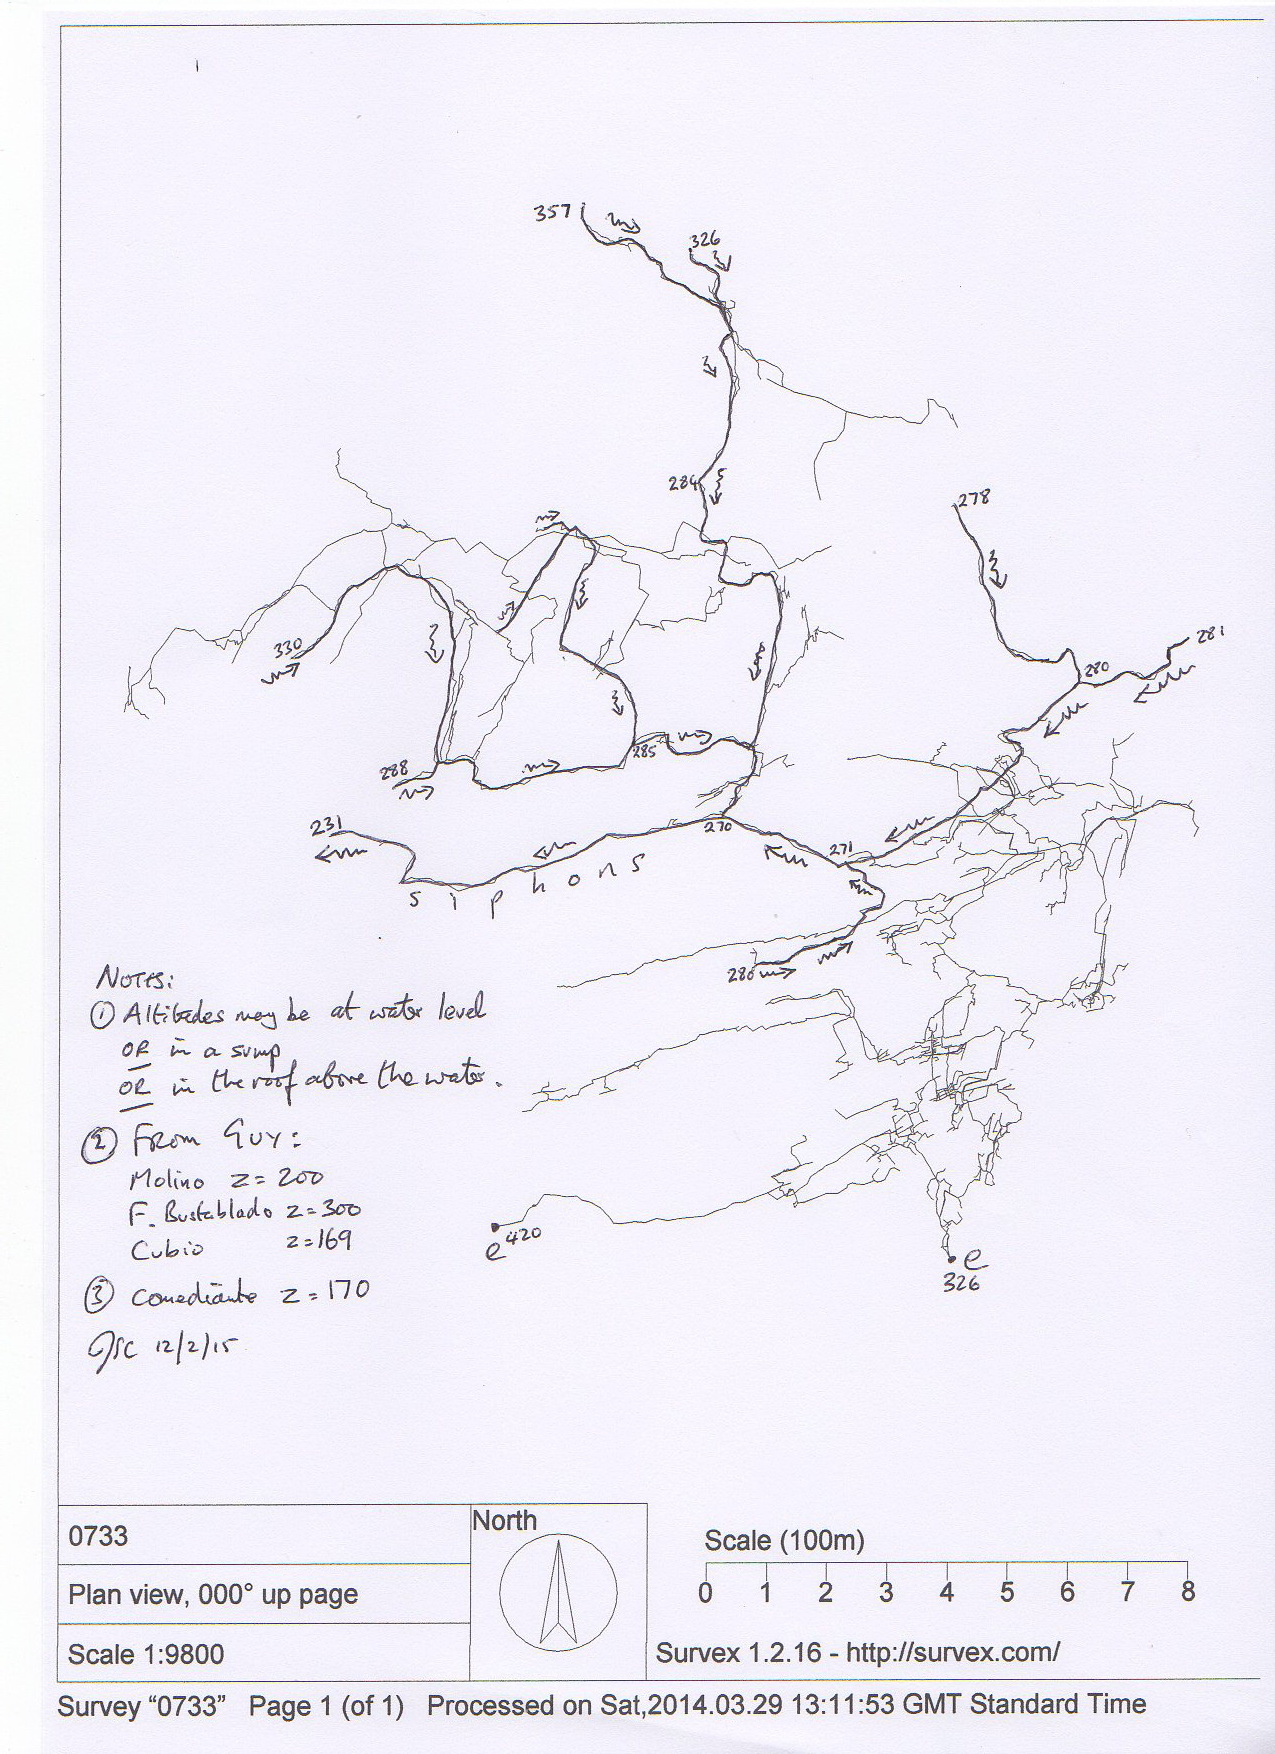 357
326
284
278
281
280
330
285
288
231
270
271
siphons
286
NOTES:
① Altitudes may be at water level
OR in a sump
OR in the roof above the water.
② FROM GUY:
Molino z=200
F. Bustablado z=300
Cubio z=169
③ Comediante z=170
JSC 12/2/15
e 420
e
326
0733
Plan view, 000° up page
Scale 1:9800
North
Scale (100m)
0 1 2 3 4 5 6 7 8
Survex 1.2.16 - http://survex.com/
Survey “0733” Page 1 (of 1) Processed on Sat,2014.03.29 13:11:53 GMT Standard Time